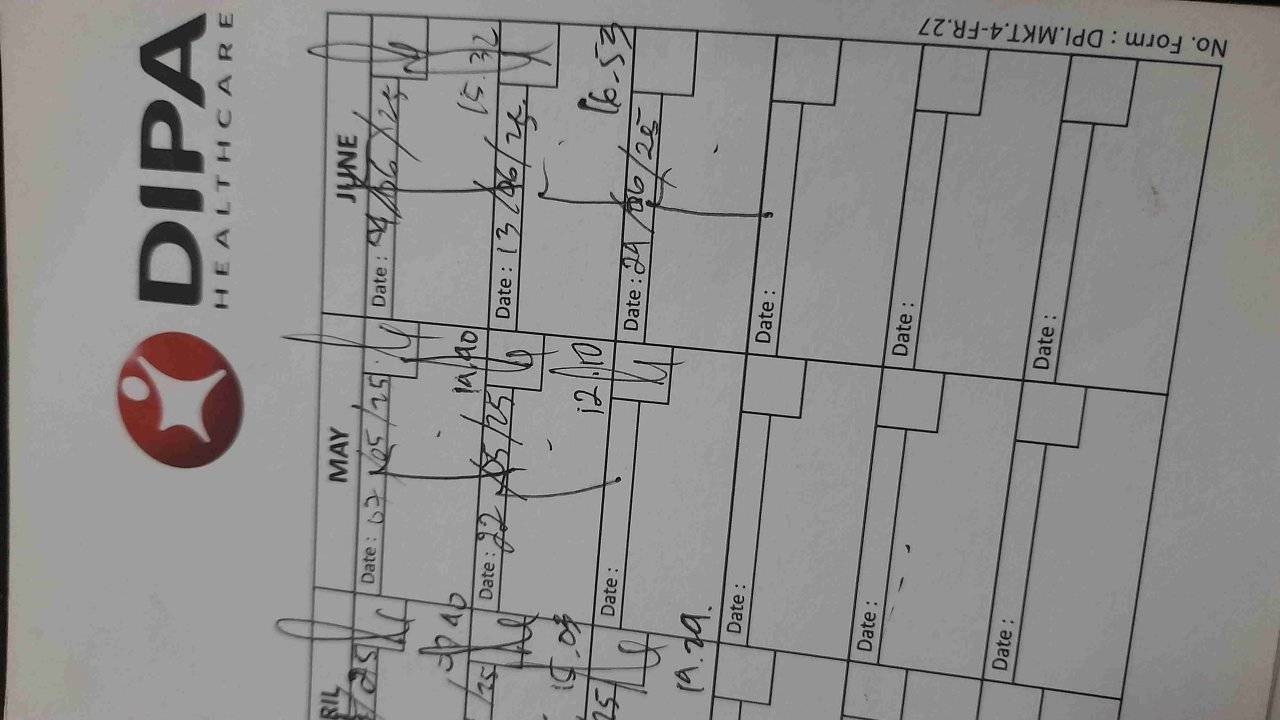 DIPA
HEALTHCARE
RIL
MAY
JUNE
/25
Date : 07/05/25
Date : 04/06/25
19.40
15.32
/25
Date : 22/05/25
Date : 13/06/25
15.03
12.10
16.53
25
Date :
Date : 24/06/25
19.29.
Date :
Date :
Date :
Date :
Date :
Date :
No. Form : DPI.MKT.4-FR.27